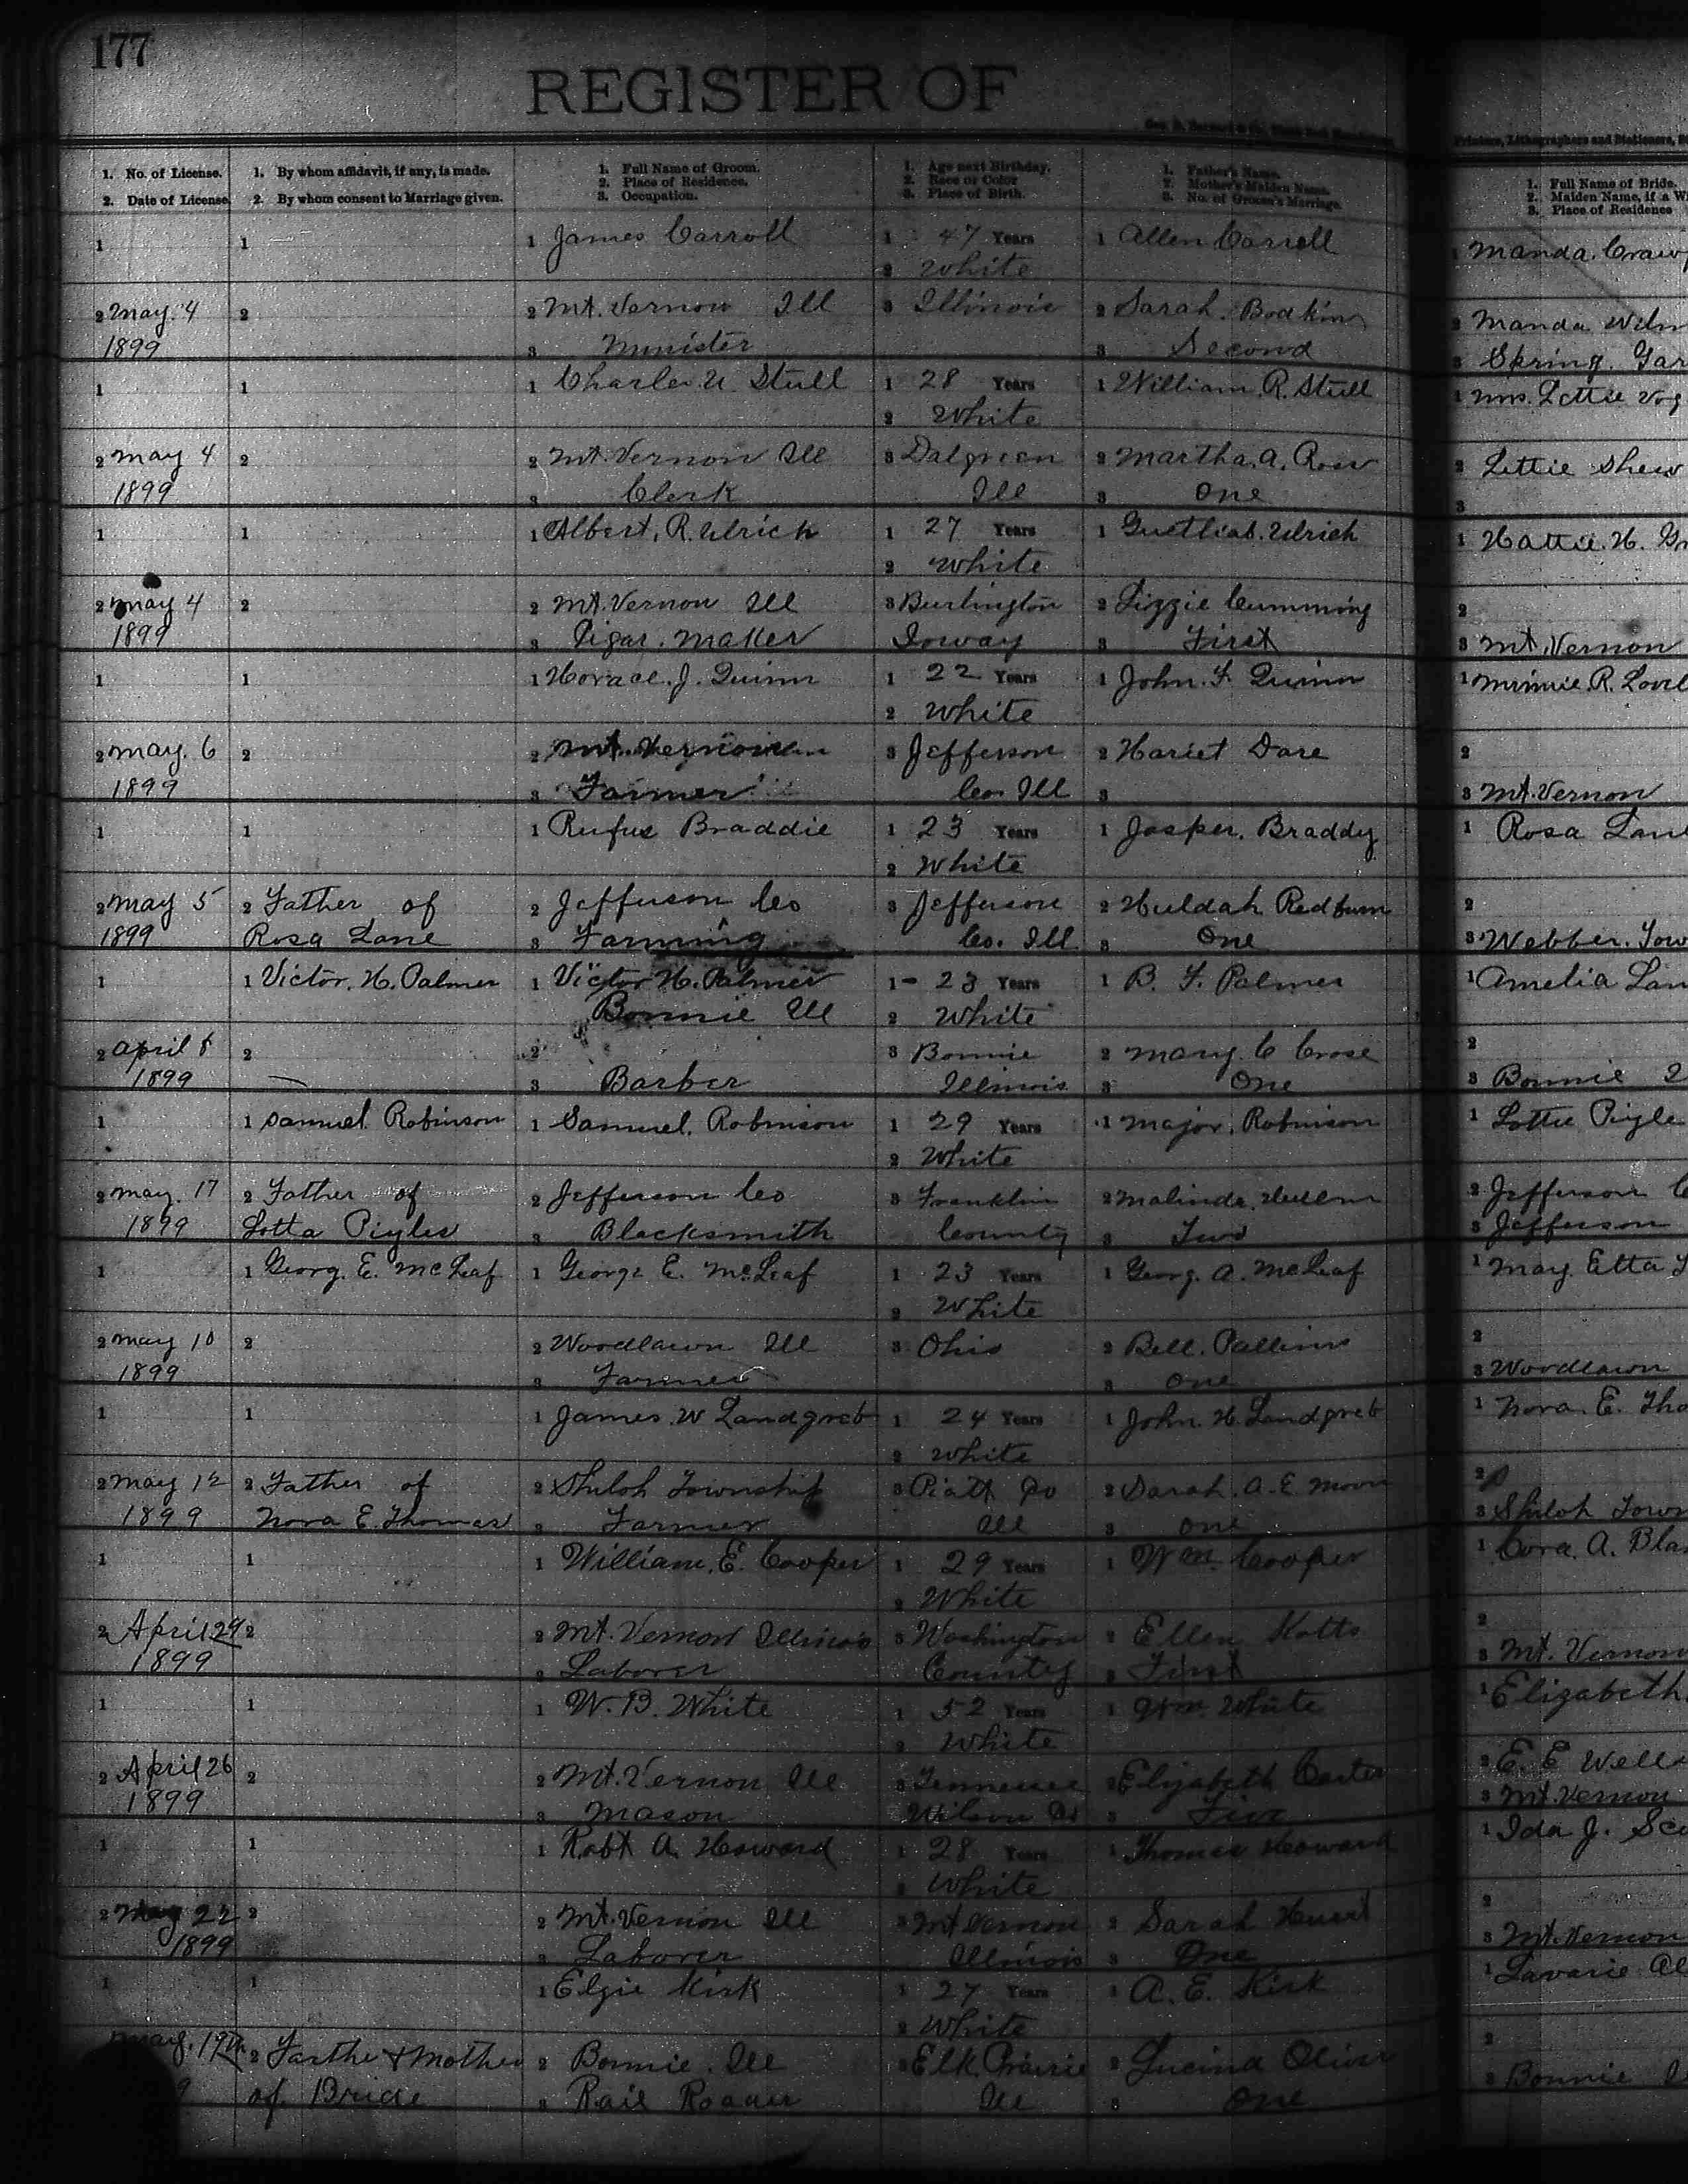 177
REGISTER OF
1. No. of License.
2. Date of License.
1. By whom affidavit, if any, is made.
2. By whom consent to Marriage given.
1. Full Name of Groom.
2. Place of Residence.
3. Occupation.
1. Age next Birthday.
2. Race or Color
3. Place of Birth.
1. Father's Name.
2. Mother's Maiden Name.
3. No. of Groom's Marriage.
Printers, Lithographers and Stationers,
1. Full Name of Bride.
2. Maiden Name, if a
3. Place of Residence
1 1 1 James Carroll 1 47 Years 1 Allen Carroll 1 Manda. Craw
2 White
2 May. 4 2 2 Mt. Vernon Ill 3 Illinois 2 Sarah. Bodkin 2 Manda
1899 3 Minister 3 Second 3 Spring. Gar
1 1 1 Charles U. Stull 1 28 Years 1 William. R. Stull 1 Mrs. Lettie
2 White
2 May 4 2 2 Mt. Vernon Ill 3 Dalgreen 2 Martha. A. 2 Lettie Shew
1899 3 Clerk Ill 3 One 3
1 1 1 Albert. R. Ulrich 1 27 Years 1 Ulrich 1 Hattie. H.
2 White
2 May 4 2 2 Mt. Vernon Ill 3 Burlington 2 Lizzie Cumming 2
1899 3 Cigar. Maker Ioway 3 First 3 Mt. Vernon
1 1 1 Horace. J. Quinn 1 22 Years 1 John. F. Quinn 1 Minnie. R.
2 White
2 May. 6 2 2 Mt. Vernon 3 Jefferson 2 Hariet Dare 2
1899 3 Farmer Co. Ill 3 3 Mt. Vernon
1 1 1 Rufus Braddie 1 23 Years 1 Jasper. Braddy 1 Rosa
2 White
2 May 5 2 Father of 2 Jefferson Co 3 Jefferson 2 Huldah Redburn 2
1899 Rosa Lane 3 Farming Co. Ill. 3 One 3 Webber. Tow
1 1 Victor. H. Palmer 1 Victor H. Palmer 1 - 23 Years 1 B. F. Palmer 1 Amelia
Bonnie Ill 2 White
2 April 8 2 2 3 Bonnie 2 Mary. C Crose 2
1899 3 Barber Illinois 3 One 3 Bonnie
1 1 Samuel. Robinson 1 Samuel. Robinson 1 29 Years 1 Major. Robinson 1 Lottie Pigle
2 White
2 May. 17 2 Father of 2 Jefferson Co 3 Franklin 2 Malinda. 2 Jefferson
1899 Lotta 3 Blacksmith County 3 Two 3 Jefferson
1 1 Georg. E. McLeaf 1 George E. McLeaf 1 23 Years 1 Georg. A. McLeaf 1 May. Etta
2 White
2 May 10 2 2 Woodlawn Ill 3 Ohio 2 Bell. 2
1899 3 Farmer 3 One 3 Woodlawn
1 1 1 James. W Landgreb 1 24 Years 1 John. H. Landgreb 1 Nora. E. Tho
2 White
2 May 12 2 Father of 2 Shiloh Township 3 Piatt Co 2 Sarah. A. E. Moon 2
1899 Nora E. Thomas 3 Farmer Ill 3 One 3 Shiloh Town
1 1 1 William. E. Cooper 1 29 Years 1 Wm. Cooper 1 Cora. A. Bla
2 White
2 April 29 2 2 Mt. Vernon Illinois 3 Washington 2 Ellen Kotts 2
1899 3 Laborer County 3 First 3 Mt. Vernon
1 1 1 W. B. White 1 52 Years 1 Wm. White 1 Elizabeth.
2 White
2 April 26 2 2 Mt. Vernon Ill 3 Tennessee 2 Elizabeth Carter 2 E. E Well
1899 3 Mason Wilson Co 3 3 Mt. Vernon
1 1 1 Robt A. Howard 1 28 Years 1 Thomas Howard 1 Ida J.
2 White
2 May 22 2 2 Mt. Vernon Ill 3 Mt Vernon 2 Sarah 2
1899 3 Laborer Illinois 3 One 3 Mt. Vernon
1 1 1 Elgie Kirk 1 27 Years 1 A. E. Kirk 1 Lavarie
2 White
May. 19th 2 Farthe & Mother 2 Bonnie. Ill 3 Elk Prairie 2 Lucind Oliver 2
9 of Bride 3 Rail Roader Ill 3 One 3 Bonnie